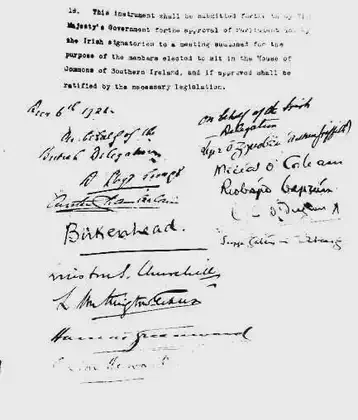 18. This instrument shall be submitted forthwith by His
Majesty's Government for the approval of Parliament and by
the Irish signatories to a meeting summoned for the
purpose of the members elected to sit in the House of
Commons of Southern Ireland, and if approved shall be
ratified by the necessary legislation.
Decr 6th 1921.
On behalf of the
British Delegation
D Lloyd George
Austen Chamberlain
Birkenhead.
Winston S. Churchill
L Worthington-Evans
Hamar Greenwood
Gordon Hewart
On behalf of the Irish
Delegation
Art Ó Gríobhtha (Arthur Griffith)
Mícheál Ó Coileain
Riobárd Bartún